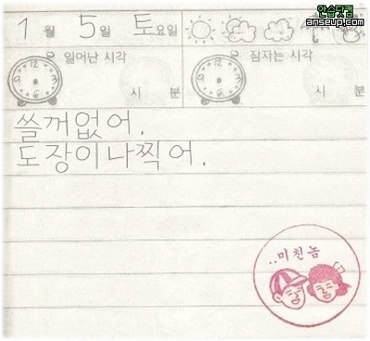 안습닷컴
anseup.com
1월 5일 토요일
일어난 시각 잠자는 시각
시 분 시 분
쓸꺼없어.
도장이나찍어.
..미친놈